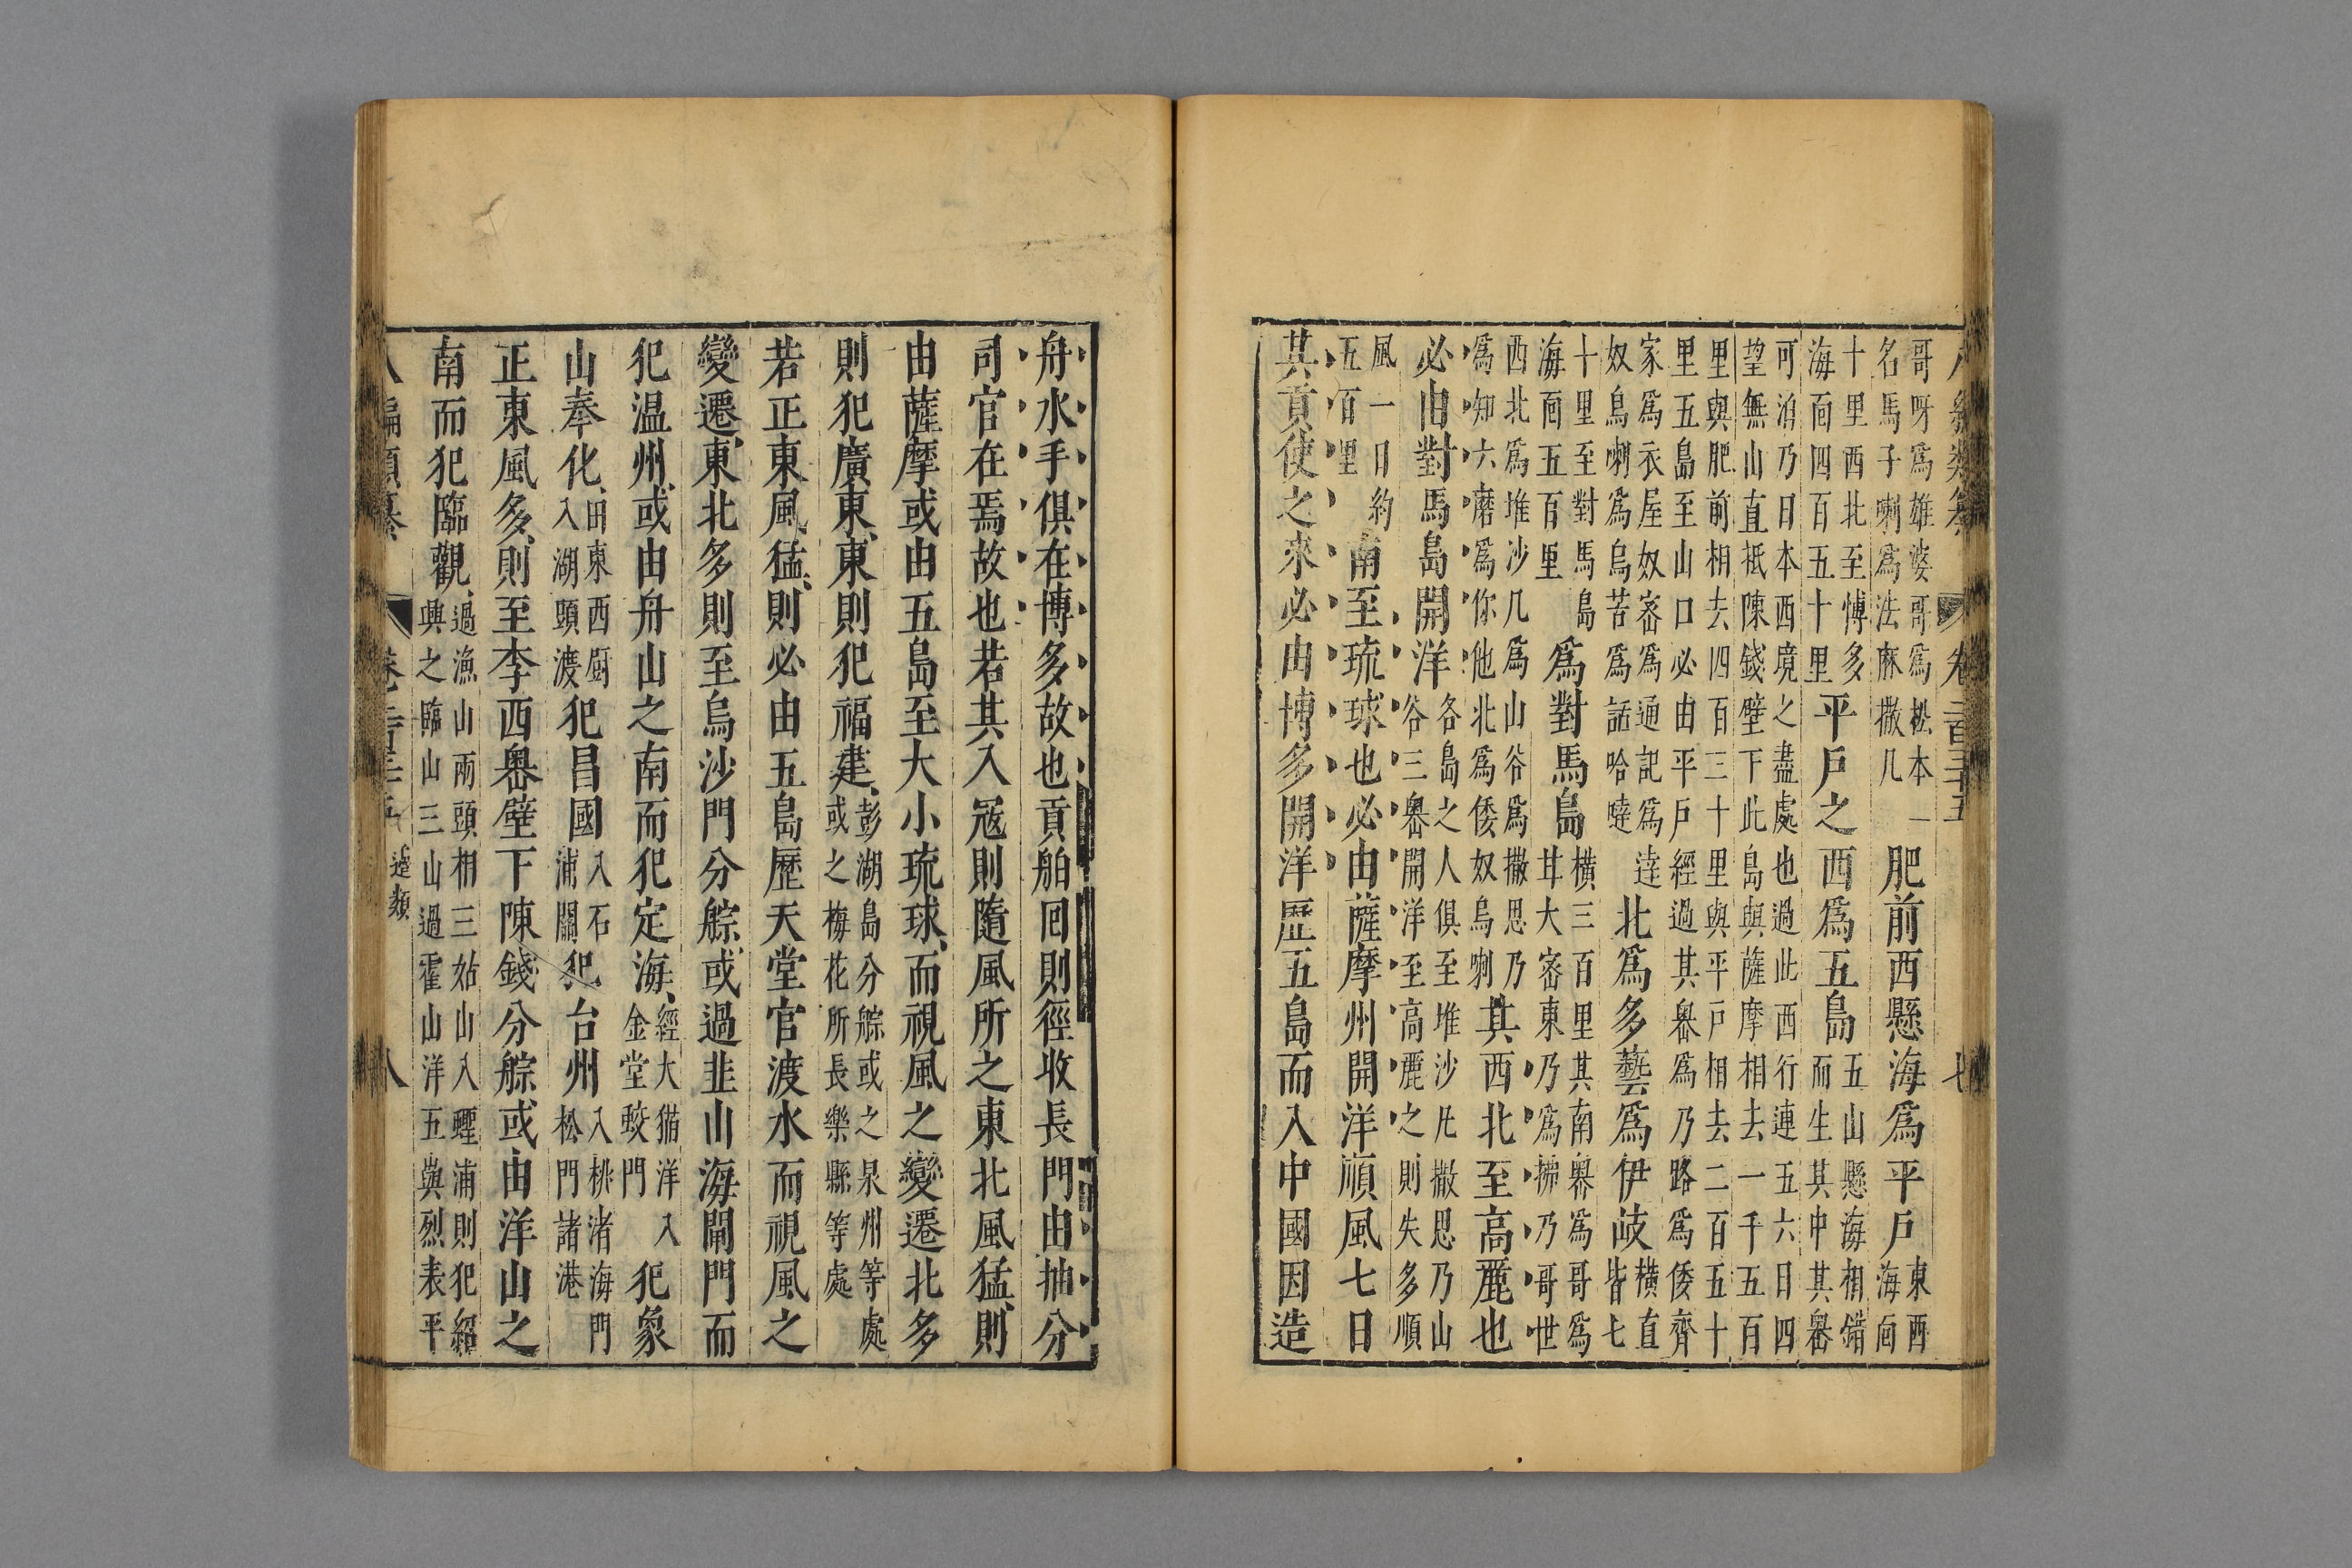 八編類纂 卷二百三十五 七
哥呀爲雄婆哥爲松本一名馬子喇爲法麻撒几肥前西懸海爲平戶東西海靣
十里西北至愽多海靣四百五十里平戶之西爲五島五山懸海相錯而生其中其嶴
可泊乃日本西境之盡處也過此西行連五六日四望無山直抵陳錢壁下此島與薩摩相去一千五百
里與肥前相去四百三十里與平戶相去二百五十里五島至山口必由平戶經過其嶴爲乃路爲倭齊
家爲衣屋奴審爲通記爲逹奴烏喇爲烏苦爲話哈噠北爲多藝爲伊岐橫直皆七
十里至對馬島海靣五百里爲對馬島橫三百里其南嶴爲哥爲廿大審東乃爲拂乃哥世
西北爲堆沙几爲山谷爲撒思乃爲知六磨爲你他北爲倭奴烏喇其西北至高麗也
必由對馬島開洋各島之人俱至堆沙凡撒思乃山谷三嶴開洋至高麗之則失多順
風一日約五百里南至琉球也必由薩摩州開洋順風七日
其貢使之來必由博多開洋歷五島而入中國因造
舟水手俱在博多故也貢舶囘則徑收長門由抽分
司官在焉故也若其入冦則隨風所之東北風猛則
由薩摩或由五島至大小琉球而視風之變遷北多
則犯廣東東則犯福建彭湖島分䑸或之泉州等處或之梅花所長樂縣等處
若正東風猛則必由五島歷天堂官渡水而視風之
變遷東北多則至烏沙門分䑸或過韭山海閘門而
犯温州或由舟山之南而犯定海經大猫洋入金堂蛟門犯象
山奉化田東西厨入湖頭渡犯昌國入石浦關犯台州入桃渚海門松門諸港
正東風多則至李西嶴壁下陳錢分䑸或由洋山之
南而犯臨觀過漁山兩頭相三姑山入蟶浦則犯紹興之臨山三山過霍山洋五㠘烈表平
八編類纂 卷二百三十五 邊類 八